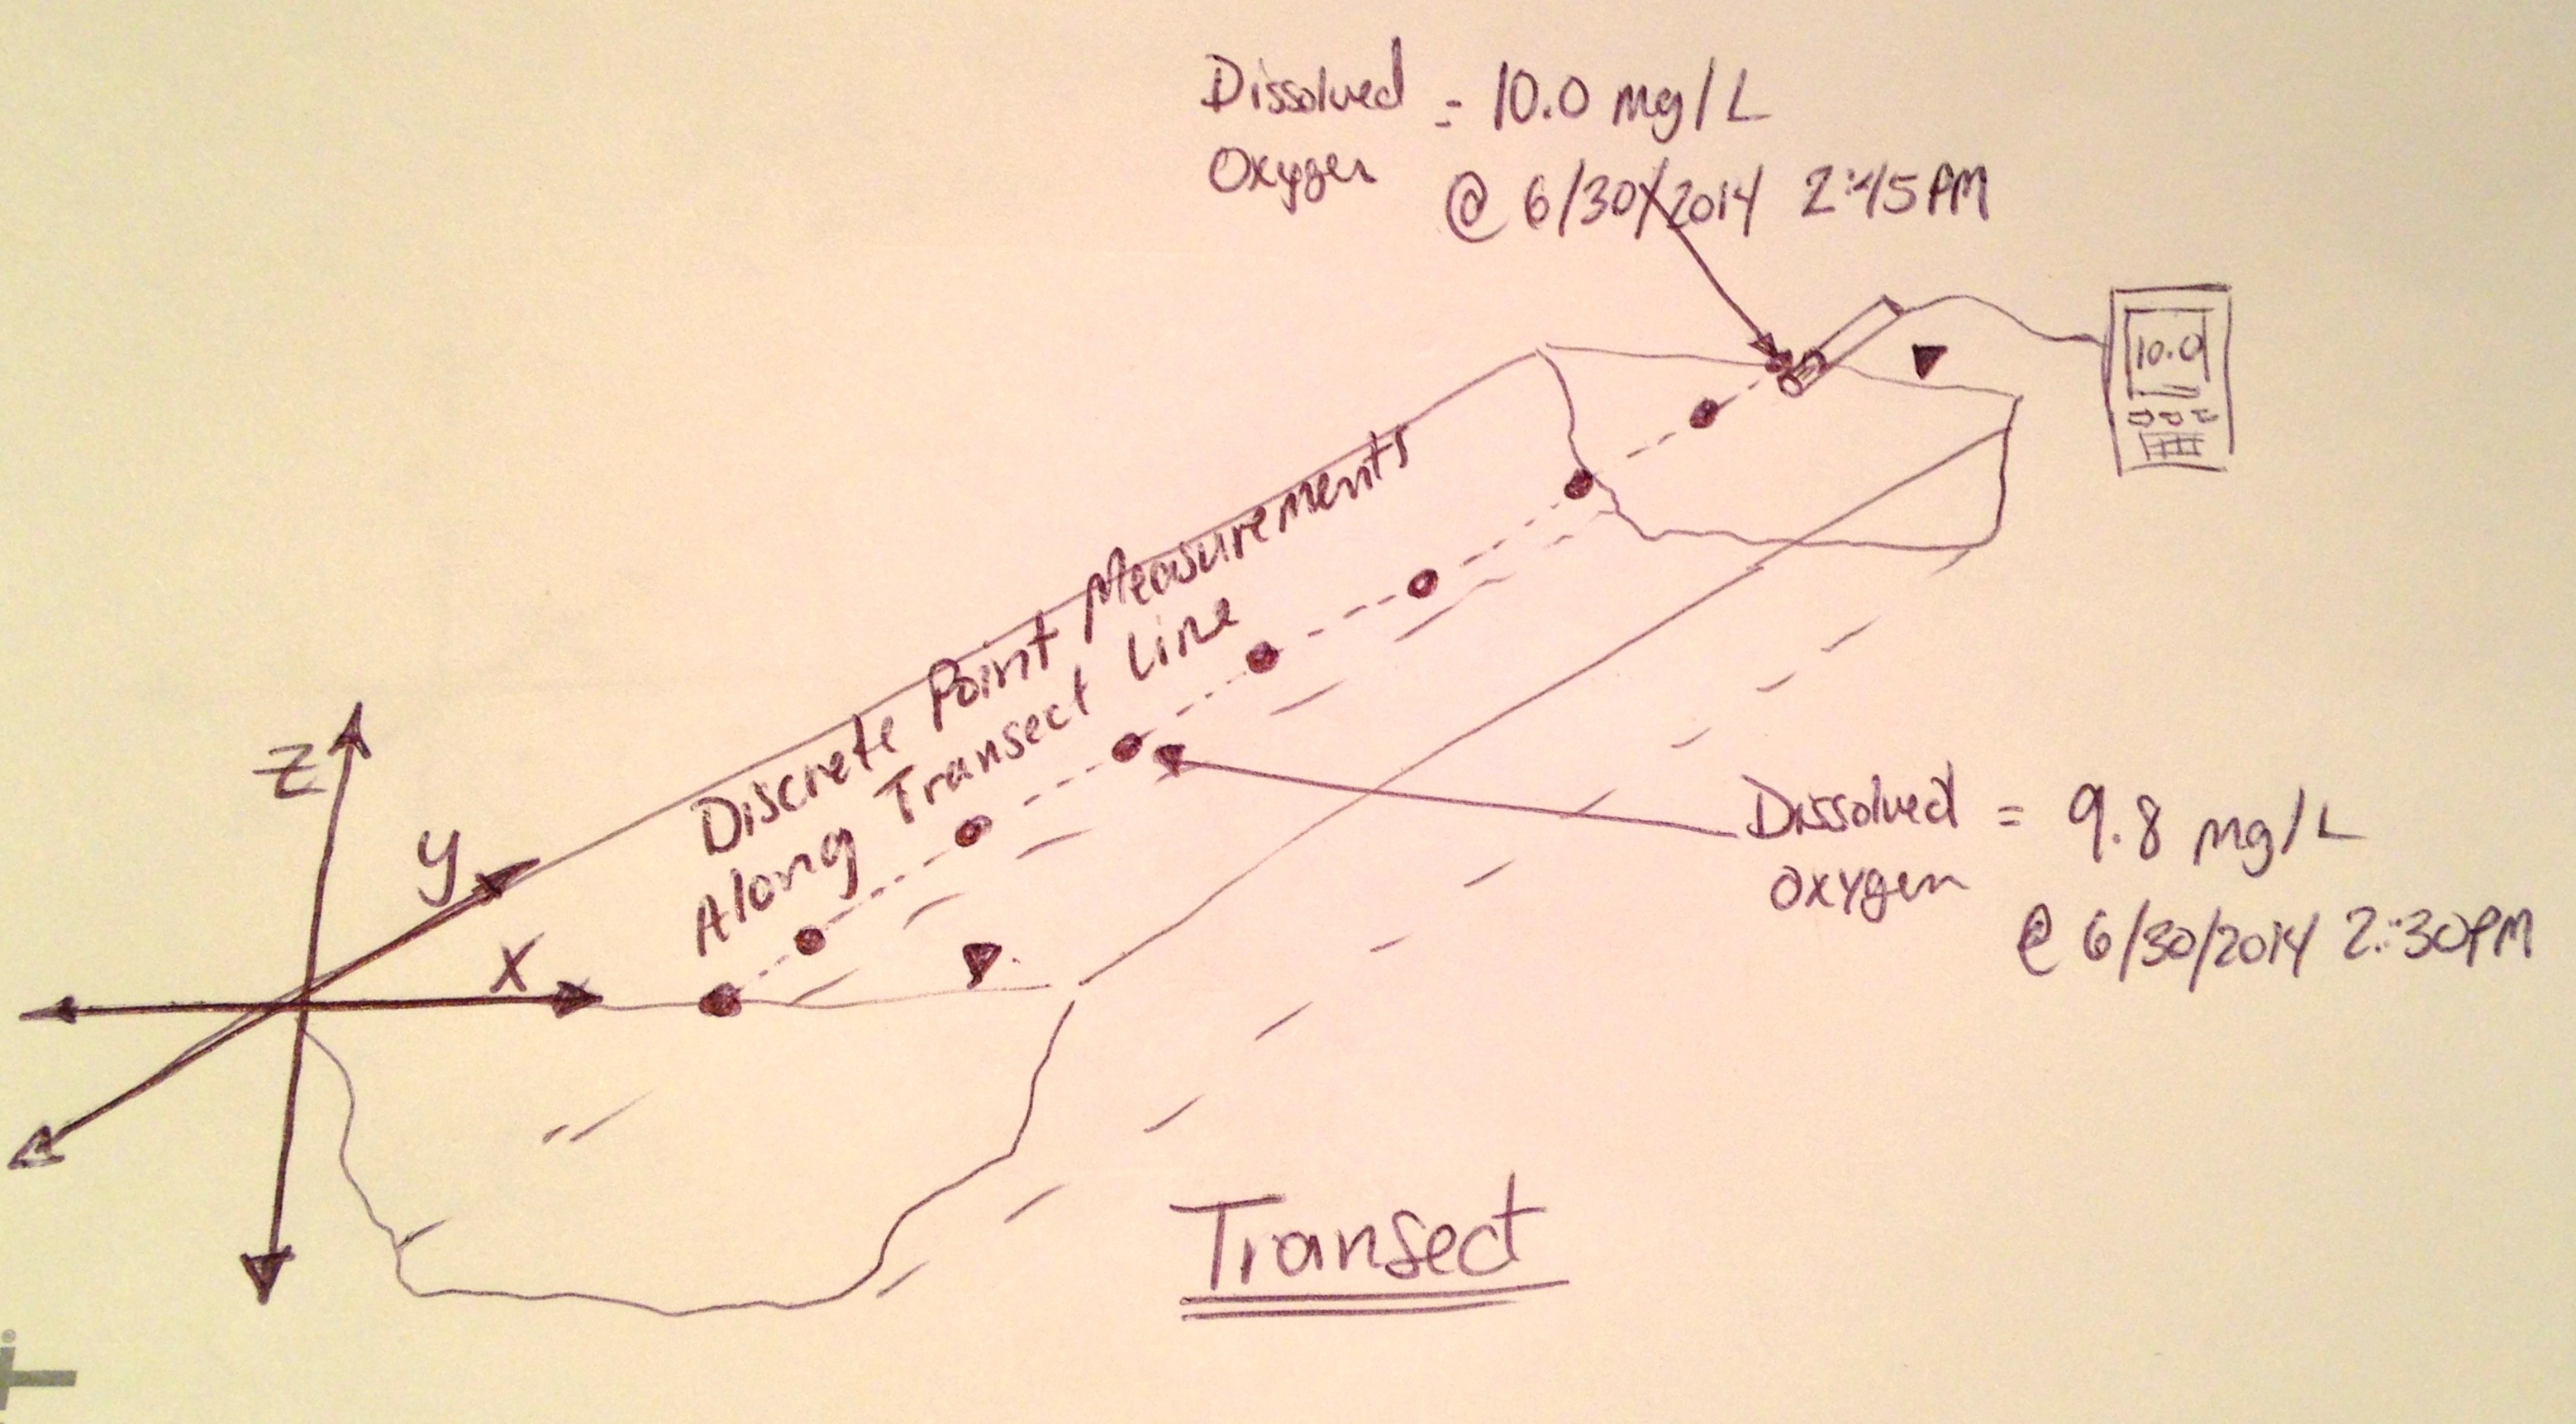 Dissolved = 10.0 mg/L
Oxygen @ 6/30/2014 2:45PM
10.0
Discrete Point Measurements
Along Transect Line
z
y
x
Dissolved = 9.8 mg/L
oxygen
@ 6/30/2014 2:30PM
Transect